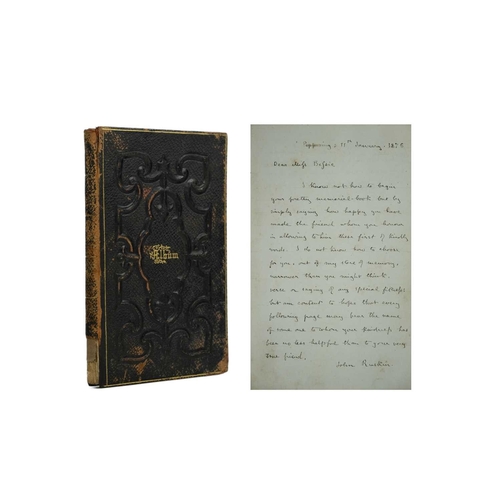 Album
January, 187
Dear Miss
I know not how to begin
your pretty memorial-book but by
simply saying how happy you have
made the friend whom you honour
in allowing to him these first of kindly
words. I do not know how to choose
for you, out of any store of memory,
narrower than you might think,
verse or saying of any special fitness
but am content to hope that every
following page may bear the name
of some one to whom your kindness has
been no less helpful than to your very
true friend.
John Ruskin